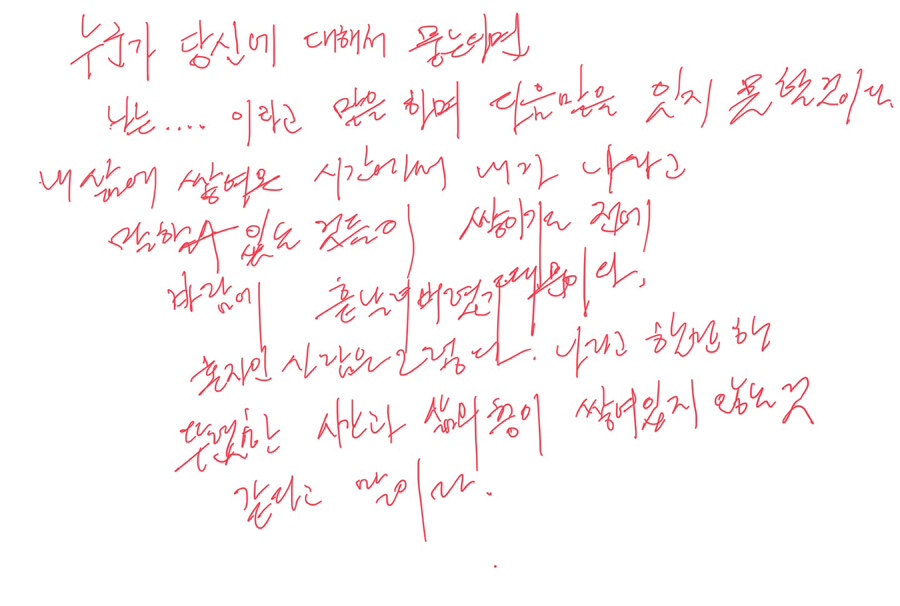 누군가 당신에 대해서 묻는다면
나는.... 이라고 말을 하며 다음말을 잇지 못할것이다.
내 삶에 쌓여온 시간에서 내가 나라고
말할수 있는 것들이 쌓이기도 전에
바람에 흩날려버렸기때문이다.
혼자인 사람은 그렇다. 나라고 할만한
뚜렷한 시간과 삶의 흥이 쌓여있지 않는것
같다고 말이다.